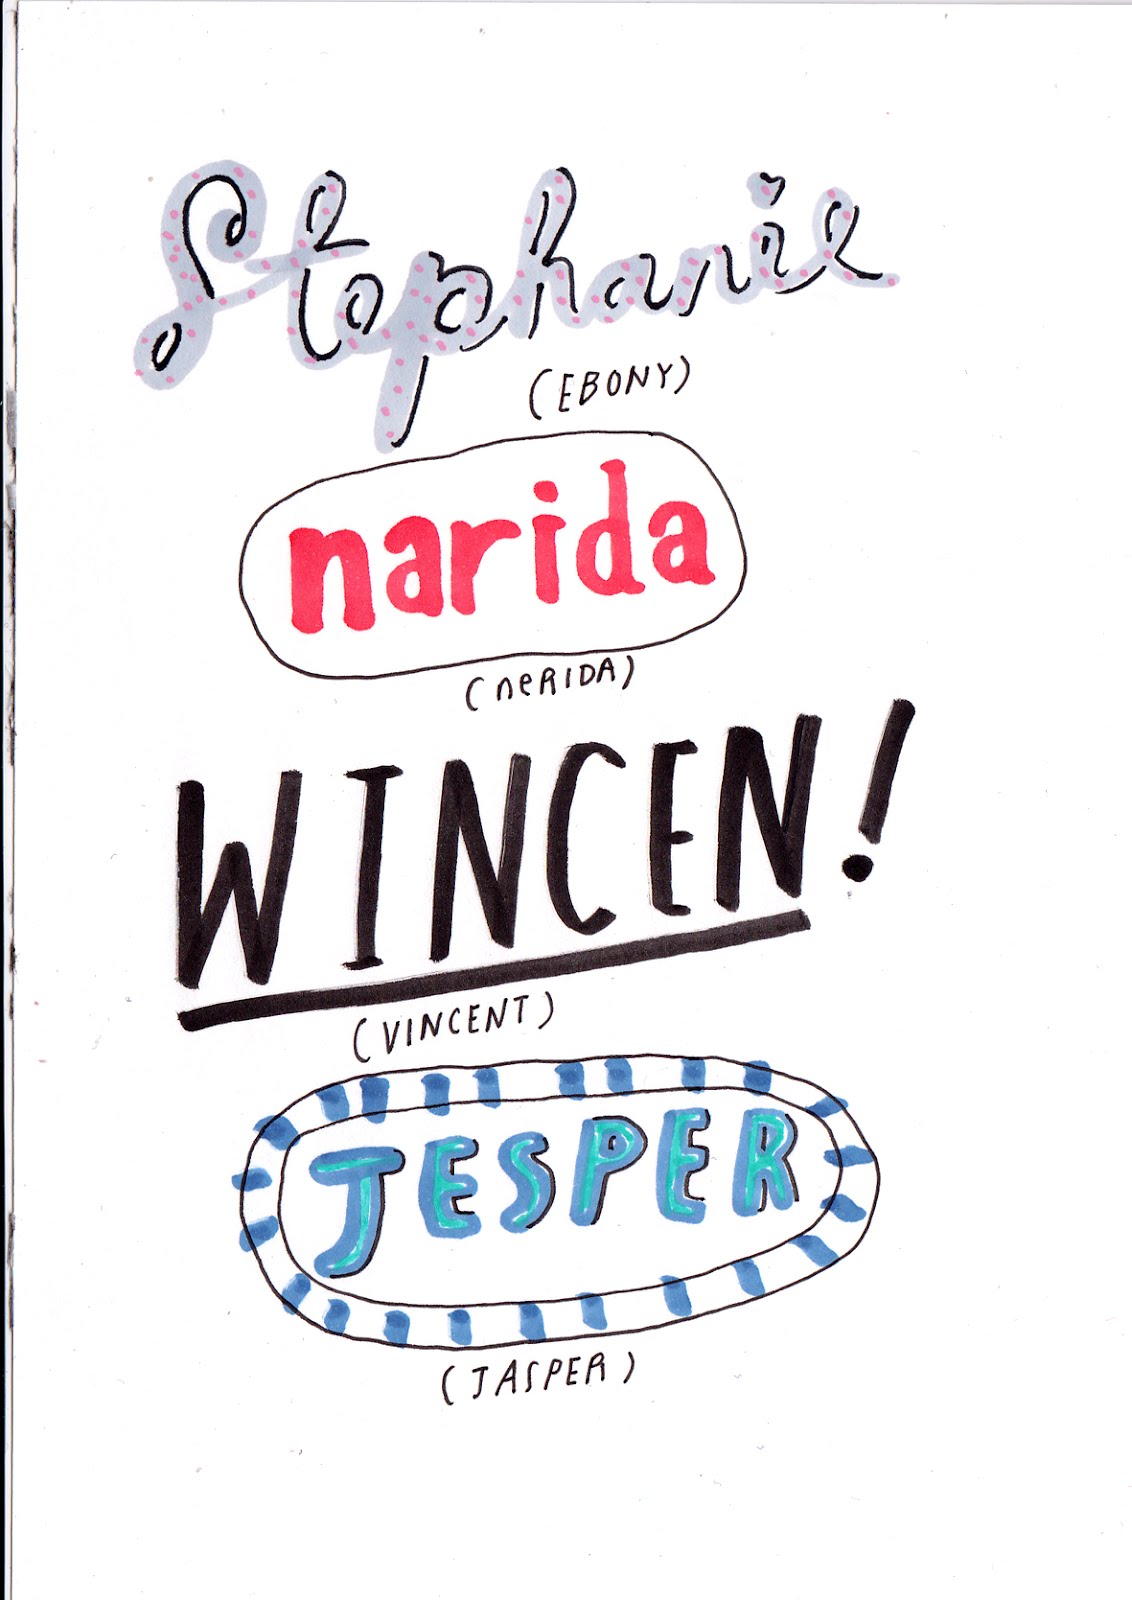 Stephanie
(EBONY)
narida
(neRIDA)
WINCEN!
(VINCENT)
JESPER
(JASPER)